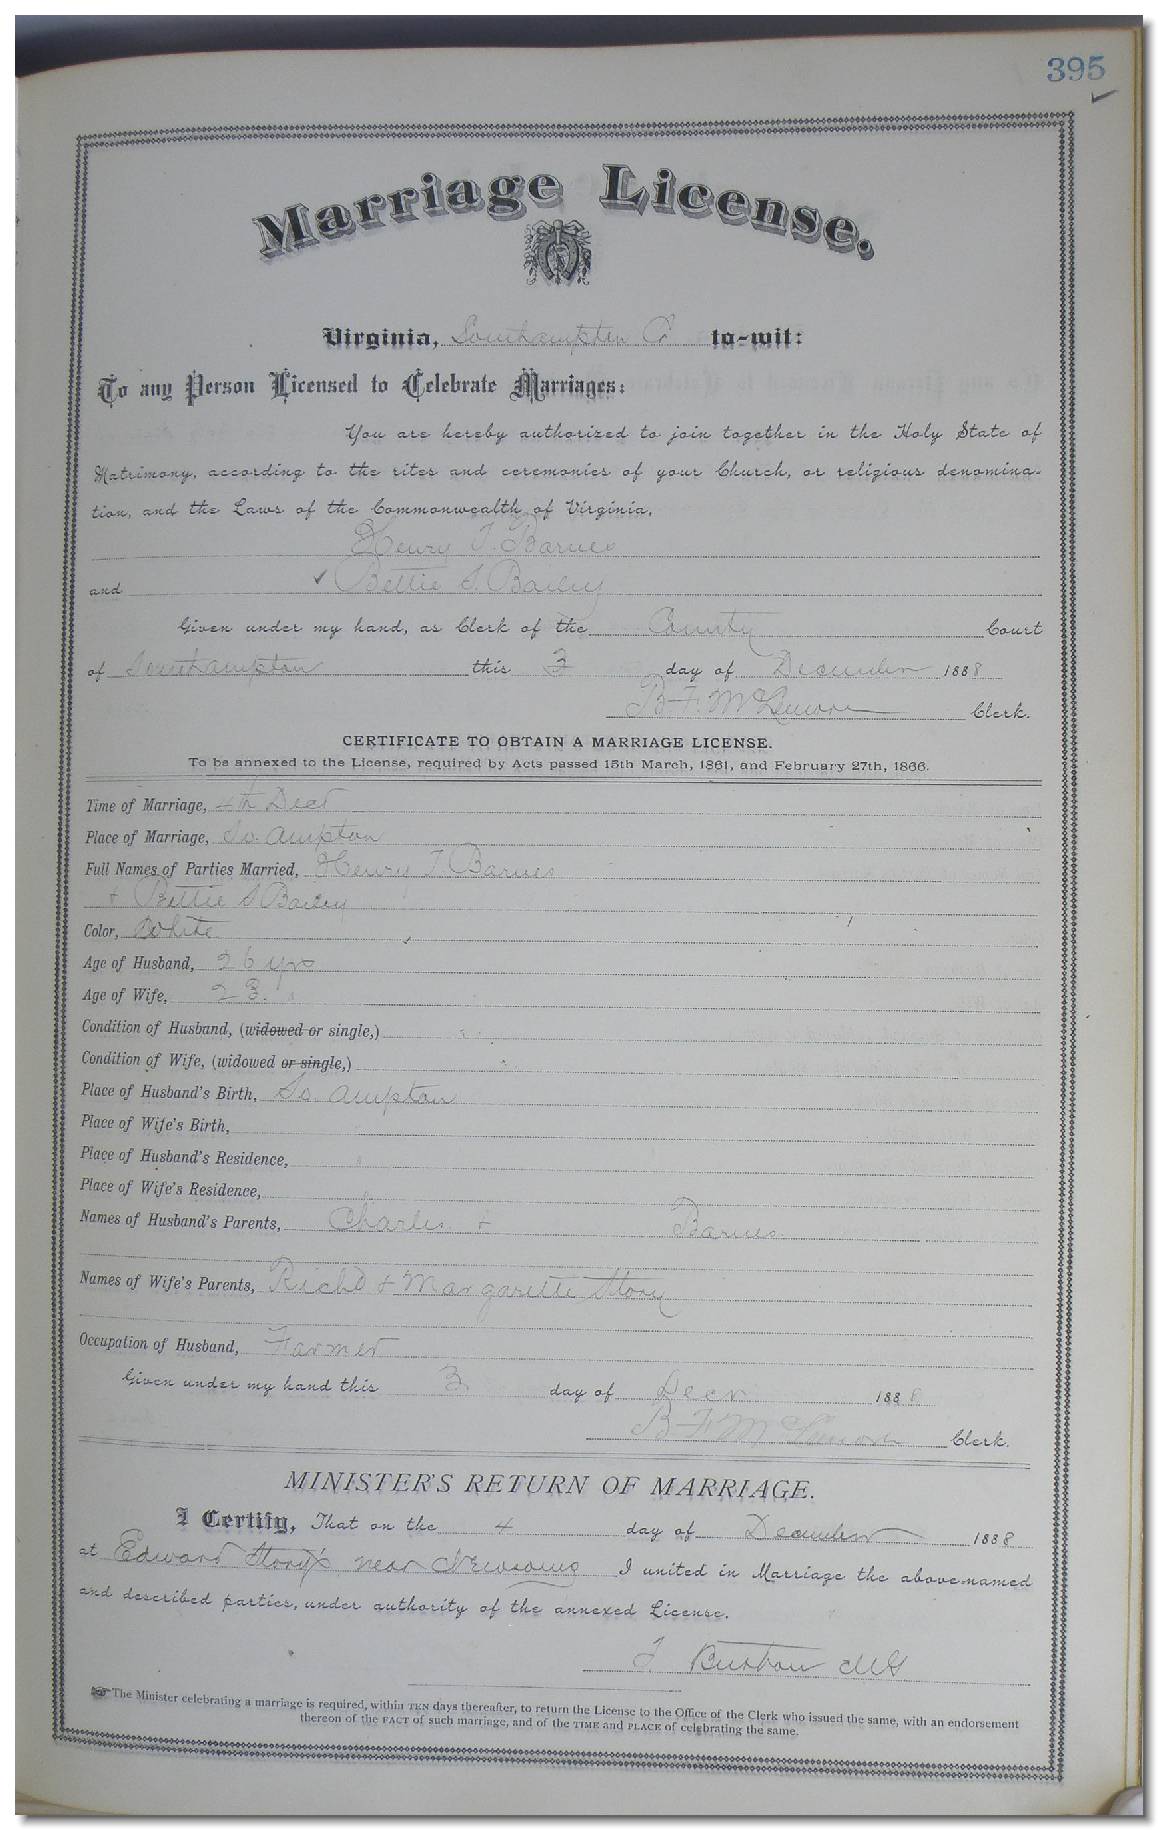 395
Marriage License.
Virginia, Southampton Co to-wit:
To any Person Licensed to Celebrate Marriages:
You are hereby authorized to join together in the Holy State of
Matrimony, according to the rites and ceremonies of your Church, or religious denomina-
tion, and the Laws of the Commonwealth of Virginia,
Henry T. Barnes
and Bettie S. Bailey
Given under my hand, as Clerk of the County Court
of Southampton this 3 day of December 1888
B. F. McLemore Clerk.
CERTIFICATE TO OBTAIN A MARRIAGE LICENSE.
To be annexed to the License, required by Acts passed 15th March, 1861, and February 27th, 1866.
Time of Marriage, 4th Decr
Place of Marriage, So. ampton
Full Names of Parties Married, Henry T Barnes
+ Bettie S Bailey
Color, White
Age of Husband, 26 yrs
Age of Wife, 23.
Condition of Husband, (widowed or single,)
Condition of Wife, (widowed or single,)
Place of Husband's Birth, So. ampton
Place of Wife's Birth,
Place of Husband's Residence,
Place of Wife's Residence,
Names of Husband's Parents, Charles + Barnes
Names of Wife's Parents, Richd + Margarette Story
Occupation of Husband, Farmer
Given under my hand this 3 day of Decr 1888
B F McLemore Clerk.
MINISTER'S RETURN OF MARRIAGE.
I Certify, That on the 4 day of December 1888
at Edward Story's near Newsoms I united in Marriage the above-named
and described parties, under authority of the annexed License.
MG
The Minister celebrating a marriage is required, within TEN days thereafter, to return the License to the Office of the Clerk who issued the same, with an endorsement
thereon of the FACT of such marriage, and of the TIME and PLACE of celebrating the same.